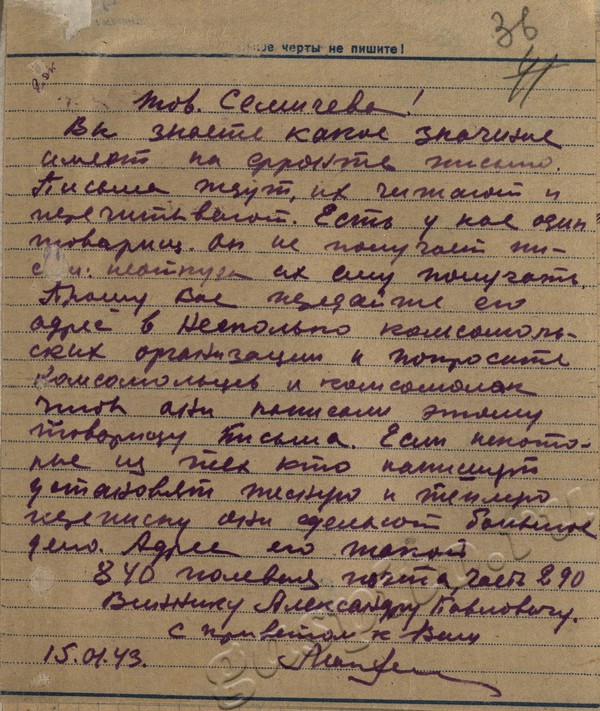 ные черты не пишите!
38
41
Тов. Семичева!
Вы знаете какое значение
имеют на фронте письма.
Письма ждут, их читают и
перечитывают. Есть у нас один
товарищ. Он не получает пи-
сем: неоткуда их ему получать.
Прошу вас передайте его
адрес в несколько комсомоль-
ских организации и попросите
комсомольцев и комсомолок
чтоб они написали этому
товарищу письма. Если некото-
рые из тех кто напишут
установят тесную и теплую
переписку они сделают большое
дело. Адрес его такой
840 полевая почта, часть 290
Виннику Александру Павловичу.
С приветом к Вам
15.01.43.